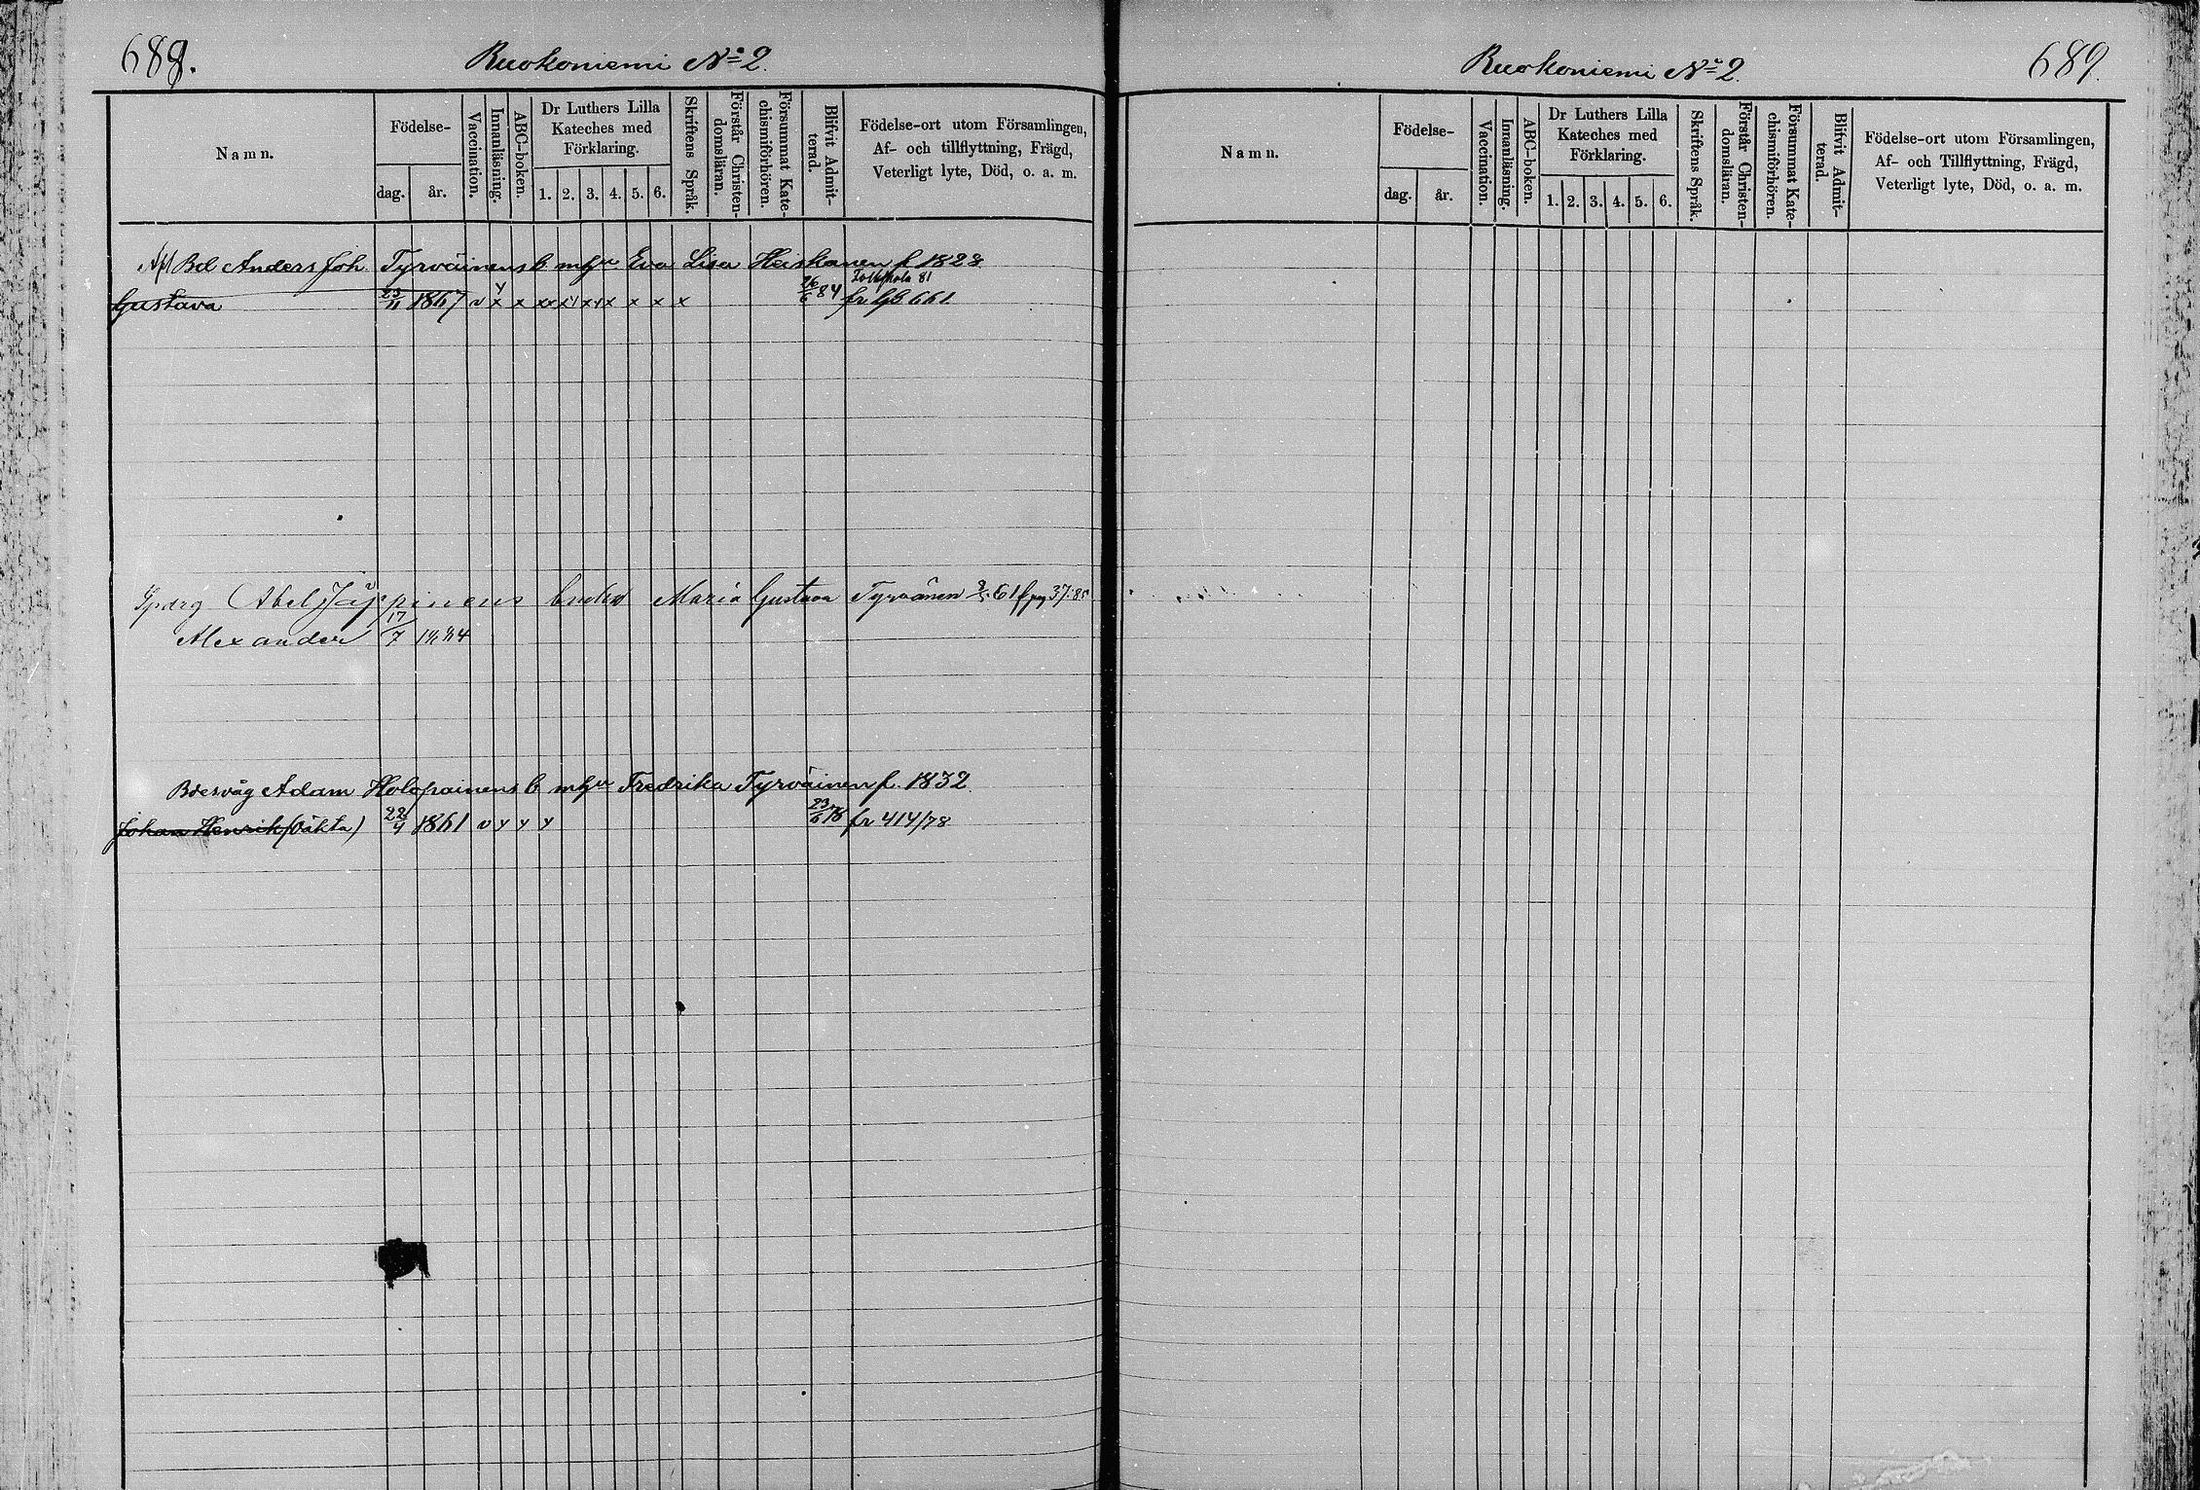 688.
Ruokoniemi No 2.
Namn.
Födelse-
dag.
år.
Vaccination.
Innanläsning.
ABC-boken.
Dr Luthers Lilla
Kateches med
Förklaring.
1. 2. 3. 4. 5. 6.
Skriftens Språk.
Förstår Christen-
domsläran.
Försummat Kate-
chismiförhören.
Blifvit Admit-
terad.
Födelse-ort utom Församlingen,
Af- och tillflyttning, Frägd,
Veterligt lyte, Död, o. a. m.
Afl Bd Anders Joh. Tyrväinens b m hu Eva Lisa Heiskanen f. 1828
Folkskola 81
Gustava 23/11 1867 v x x xx x x x x x x 26/6 84 fr 661
Abel Jäppinens Maria Gustava Tyrvänen 61 37:85
Alexander 17/7 1884
Adam Holopainens b m hu Fredrika Tyrväinen f. 1832
Johan Henrik (oäkta) 22/4 1861 v y y y 23/6 78 fr 414/78
Ruokoniemi No 2.
689.
Namn.
Födelse-
dag.
år.
Vaccination.
Innanläsning.
ABC-boken.
Dr Luthers Lilla
Kateches med
Förklaring.
1. 2. 3. 4. 5. 6.
Skriftens Språk.
Förstår Christen-
domsläran.
Försummat Kate-
chismiförhören.
Blifvit Admit-
terad.
Födelse-ort utom Församlingen,
Af- och Tillflyttning, Frägd,
Veterligt lyte, Död, o. a. m.